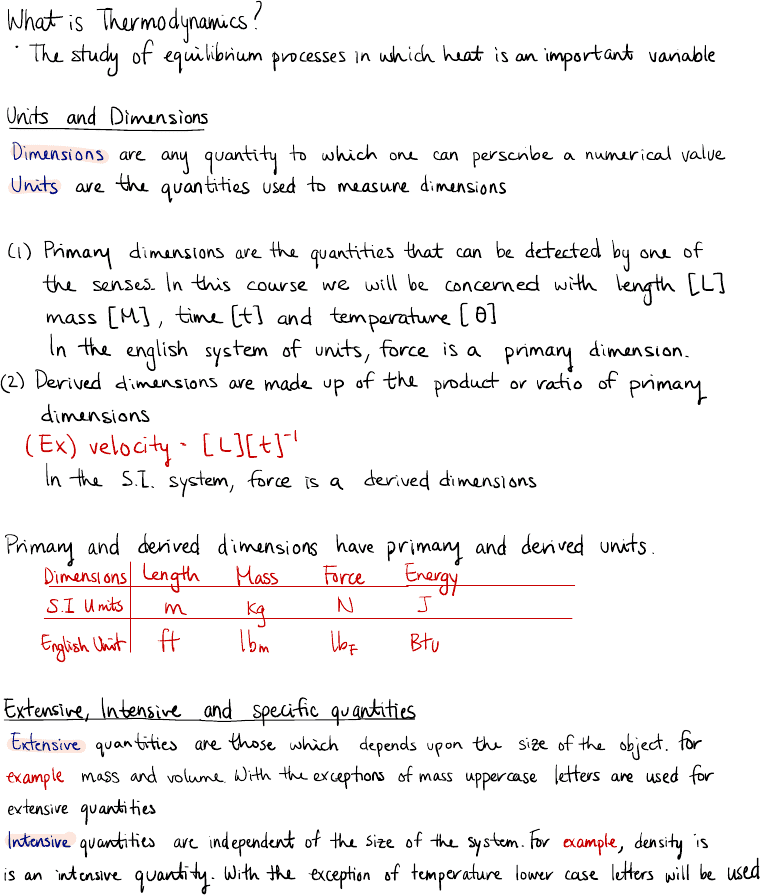 What is Thermodynamics?
· The study of equilibrium processes in which heat is an important variable
Units and Dimensions
Dimensions are any quantity to which one can perscribe a numerical value
Units are the quantities used to measure dimensions
(1) Primary dimensions are the quantities that can be detected by one of
the senses. In this course we will be concerned with length [L]
mass [M], time [t] and temperature [θ]
In the english system of units, force is a primary dimension.
(2) Derived dimensions are made up of the product or ratio of primary
dimensions
(Ex) velocity - [L][t]⁻¹
In the S.I. system, force is a derived dimensions
Primary and derived dimensions have primary and derived units.
Dimensions Length Mass Force Energy
S.I Units m kg N J
English Unit ft lbm lbF Btu
Extensive, Intensive and specific quantities
Extensive quantities are those which depends upon the size of the object. for
example mass and volume. With the exceptions of mass uppercase letters are used for
extensive quantities
Intensive quantities are independent of the size of the system. For example, density is
is an intensive quantity. With the exception of temperature lower case letters will be used